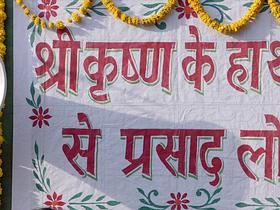 श्रीकृष्ण के हा
से प्रसाद लो